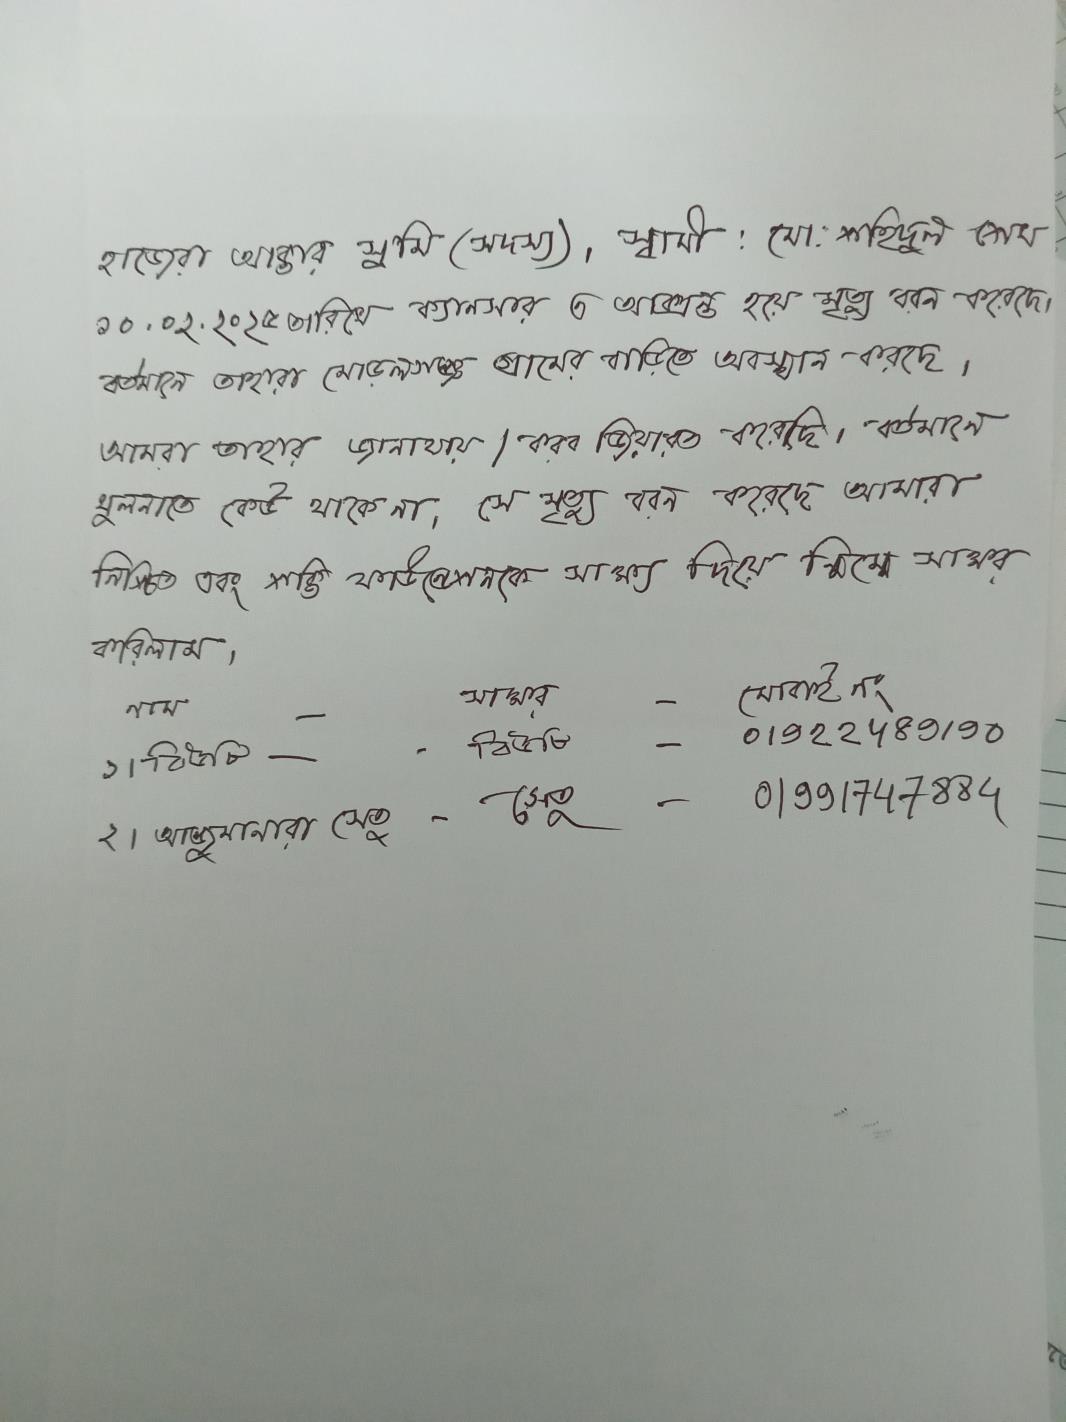 হাজেরা আক্তার সুমি (সদস্য), স্বামী : মো: শহিদুল শেখ
১০.০২.২০২৫ তারিখে ক্যানসার এ আক্রান্ত হয়ে মৃত্যু বরন করেছে।
বর্তমানে তাহারা মোড়লগঞ্জ গ্রামের বাড়িতে অবস্থান করছে,
আমরা তাহার জানাযায় / কবর জিয়ারত করেছি। বর্তমানে
খুলনাতে কেউ থাকে না, সে মৃত্যু বরন করেছে আমারা
নিশ্চিত এবং শক্তি ফাউন্ডেশনকে সাক্ষ্য দিয়ে নিম্মে সাক্ষর
করিলাম,
নাম – সাক্ষর – মোবাইল নং
১। বিউটি – - বিউটি – 01922489190
২। আন্জুমানারা সেতু - সেতু – 01991747884